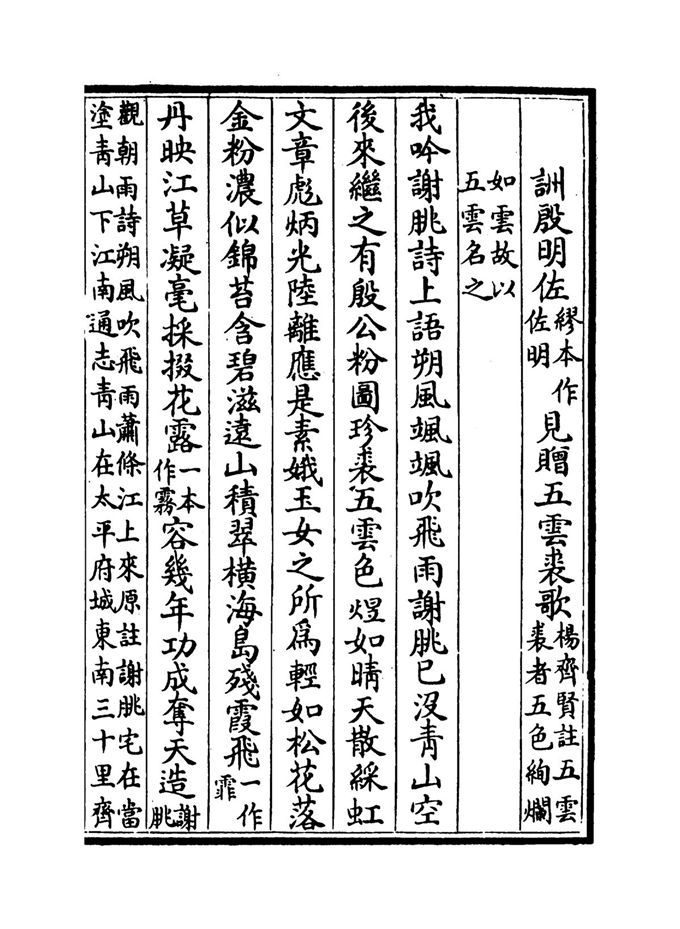 詶殷明佐繆本作佐明見贈五雲裘歌楊齊賢註五雲裘者五色絢爛
如雲故以五雲名之
我吟謝朓詩上語朔風颯颯吹飛雨謝朓已没青山空
後來繼之有殷公粉圖珍裘五雲色煜如晴天散綵虹
文章彪炳光陸離應是素娥玉女之所爲輕如松花落
金粉濃似錦苔含碧滋遠山積翠横海島殘霞飛一作霏
丹映江草凝毫採掇花露一本作霧容幾年功成奪天造謝朓
觀朝雨詩朔風吹飛雨蕭條江上來原註謝朓宅在當
塗青山下江南通志青山在太平府城東南三十里齊